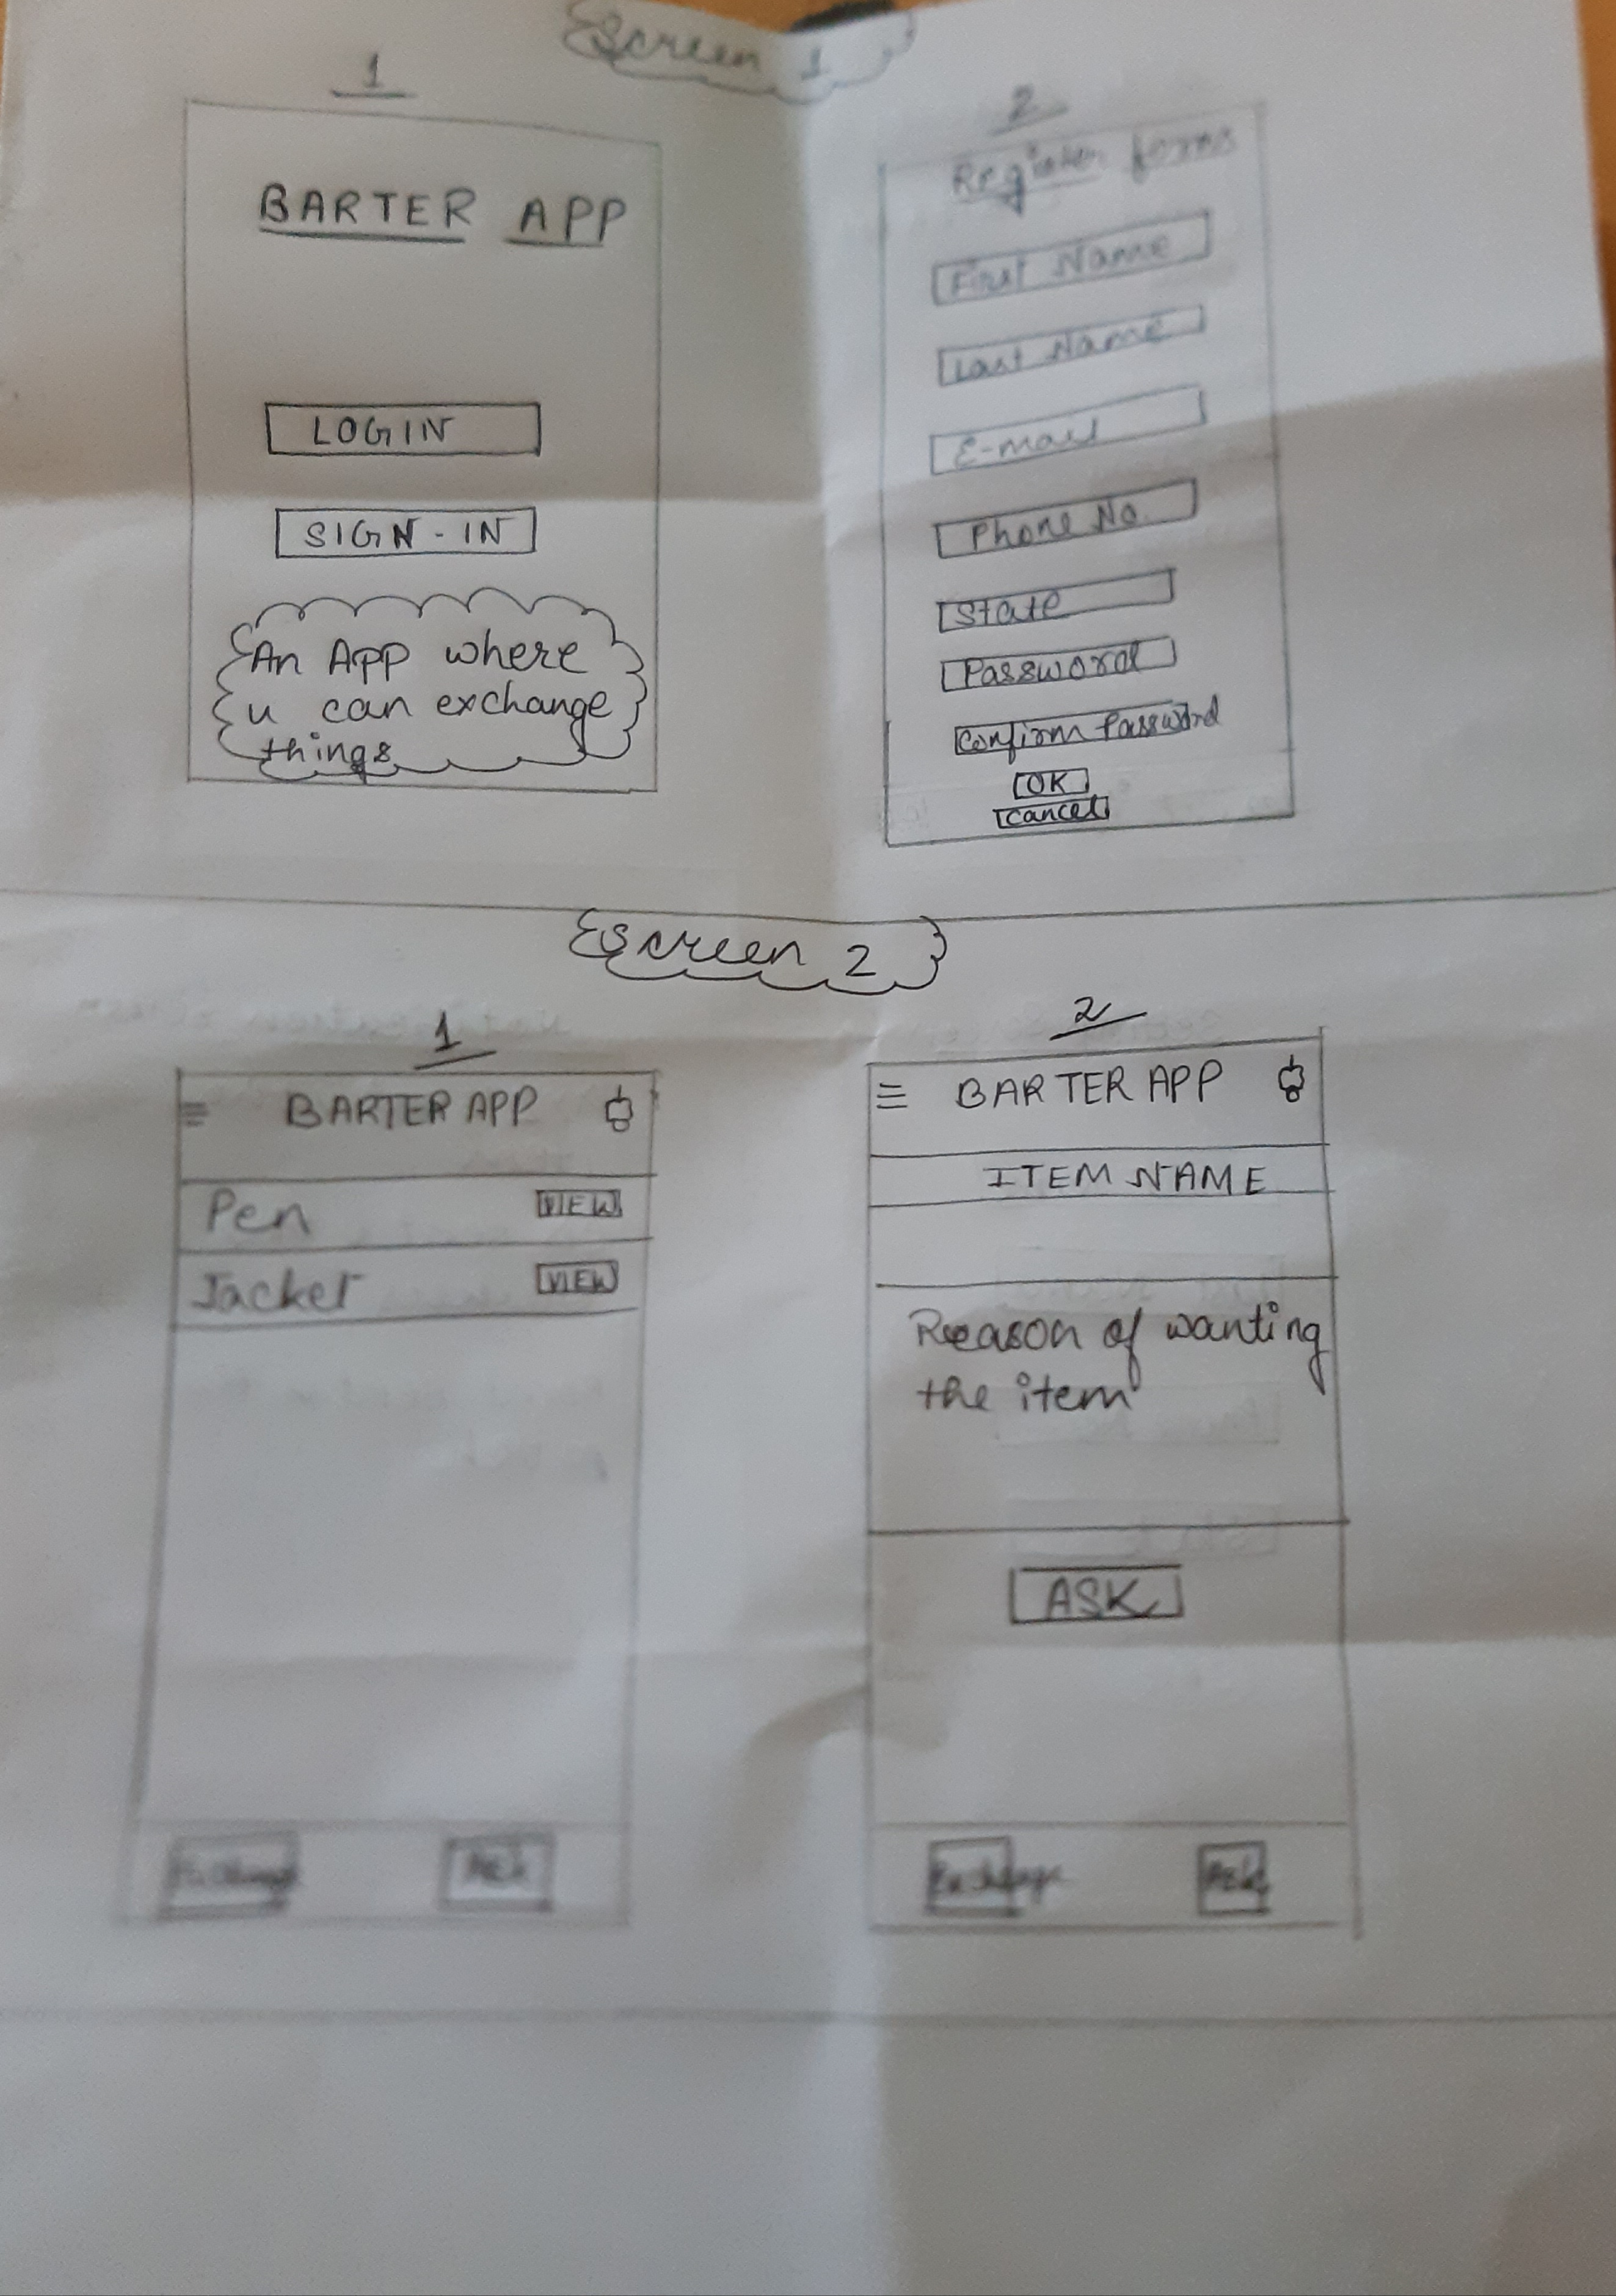 Screen 1
1
BARTER APP
LOGIN
SIGN-IN
An App where
u can exchange
things
2
Register forms
First Name
Last Name
E-mail
Phone No.
State
Password
Confirm Password
OK
Cancel
Screen 2
1
BARTER APP
Pen VIEW
Jacket VIEW
Exchange Ask
2
BARTER APP
ITEM NAME
Reason of wanting
the item
ASK
Exchange Ask